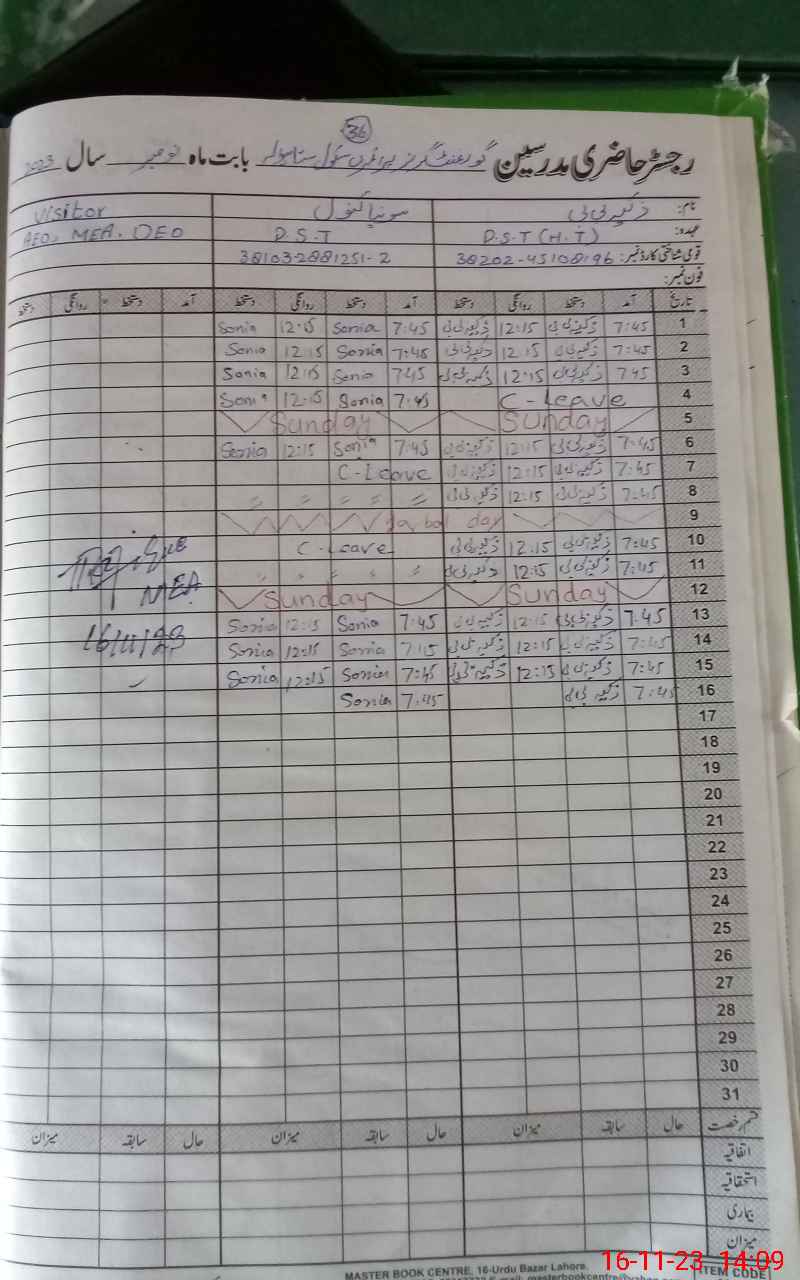 36
رجسٹر حاضری مدرسین گورنمنٹ گرلز پرائمری سکول بابت ماہ نومبر سال 2023
نام: ذکیہ بی بی سونیا کنول Visitor
عہدہ: P.S.T (H.T) P.S.T AEO, MEA, DEO
قومی شناختی کارڈ نمبر: 38202-4510819-6 38103-2881251-2
فون نمبر:
تاریخ آمد دستخط روانگی دستخط آمد دستخط روانگی دستخط آمد دستخط روانگی دستخط
1 7:45 ذکیہ بی بی 12:15 ذکیہ بی بی 7:45 Sonia 12:15 Sonia
2 7:45 ذکیہ بی بی 12:15 ذکیہ بی بی 7:45 Sonia 12:15 Sonia
3 7:45 ذکیہ بی بی 12:15 ذکیہ بی بی 7:45 Sonia 12:15 Sonia
4 C-Leave 7:45 Sonia 12:15 Sonia
5 Sunday Sunday
6 7:45 ذکیہ بی بی 12:15 ذکیہ بی بی 7:45 Sonia 12:15 Sonia
7 7:45 ذکیہ بی بی 12:15 ذکیہ بی بی C-Leave
8 7:45 ذکیہ بی بی 12:15 ذکیہ بی بی " " " "
9 day
10 7:45 ذکیہ بی بی 12:15 ذکیہ بی بی C-Leave
11 7:45 ذکیہ بی بی 12:15 ذکیہ بی بی " " " "
12 Sunday Sunday
13 7:45 ذکیہ بی بی 12:15 ذکیہ بی بی 7:45 Sonia 12:15 Sonia
14 7:45 ذکیہ بی بی 12:15 ذکیہ بی بی 7:15 Sonia 12:15 Sonia
15 7:45 ذکیہ بی بی 12:15 ذکیہ بی بی 7:45 Sonia 12:15 Sonia
16 7:45 ذکیہ بی بی 7:45 Sonia
MEA
16/11/23
17
18
19
20
21
22
23
24
25
26
27
28
29
30
31
قسم رخصت حال سابقہ میزان حال سابقہ میزان حال سابقہ میزان
اتفاقیہ
استحقاقیہ
بیماری
میزان
MASTER BOOK CENTRE, 16-Urdu Bazar Lahore.
ITEM CODE
16-11-23 14:09